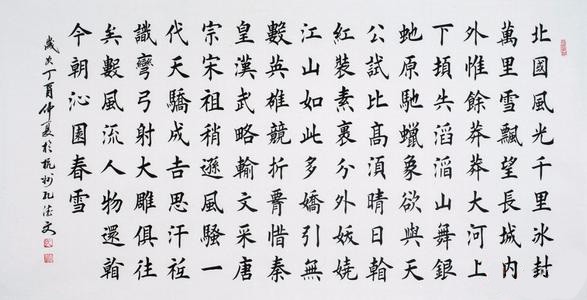 北國風光千里冰封
萬里雪飄望長城內
外惟餘莽莽大河上
下頓失滔滔山舞銀
虵原馳蠟象欲與天
公試比髙湏晴日看
紅裝素裹分外妖嬈
江山如此多嬌引無
數英雄競折腰惜秦
皇漢武略輸文采唐
宗宋祖稍遜風騷一
代天驕成吉思汗祗
識彎弓射大雕俱往
矣數風流人物還看
今朝沁園春雪
歲次丁酉仲夏於杭州孔文